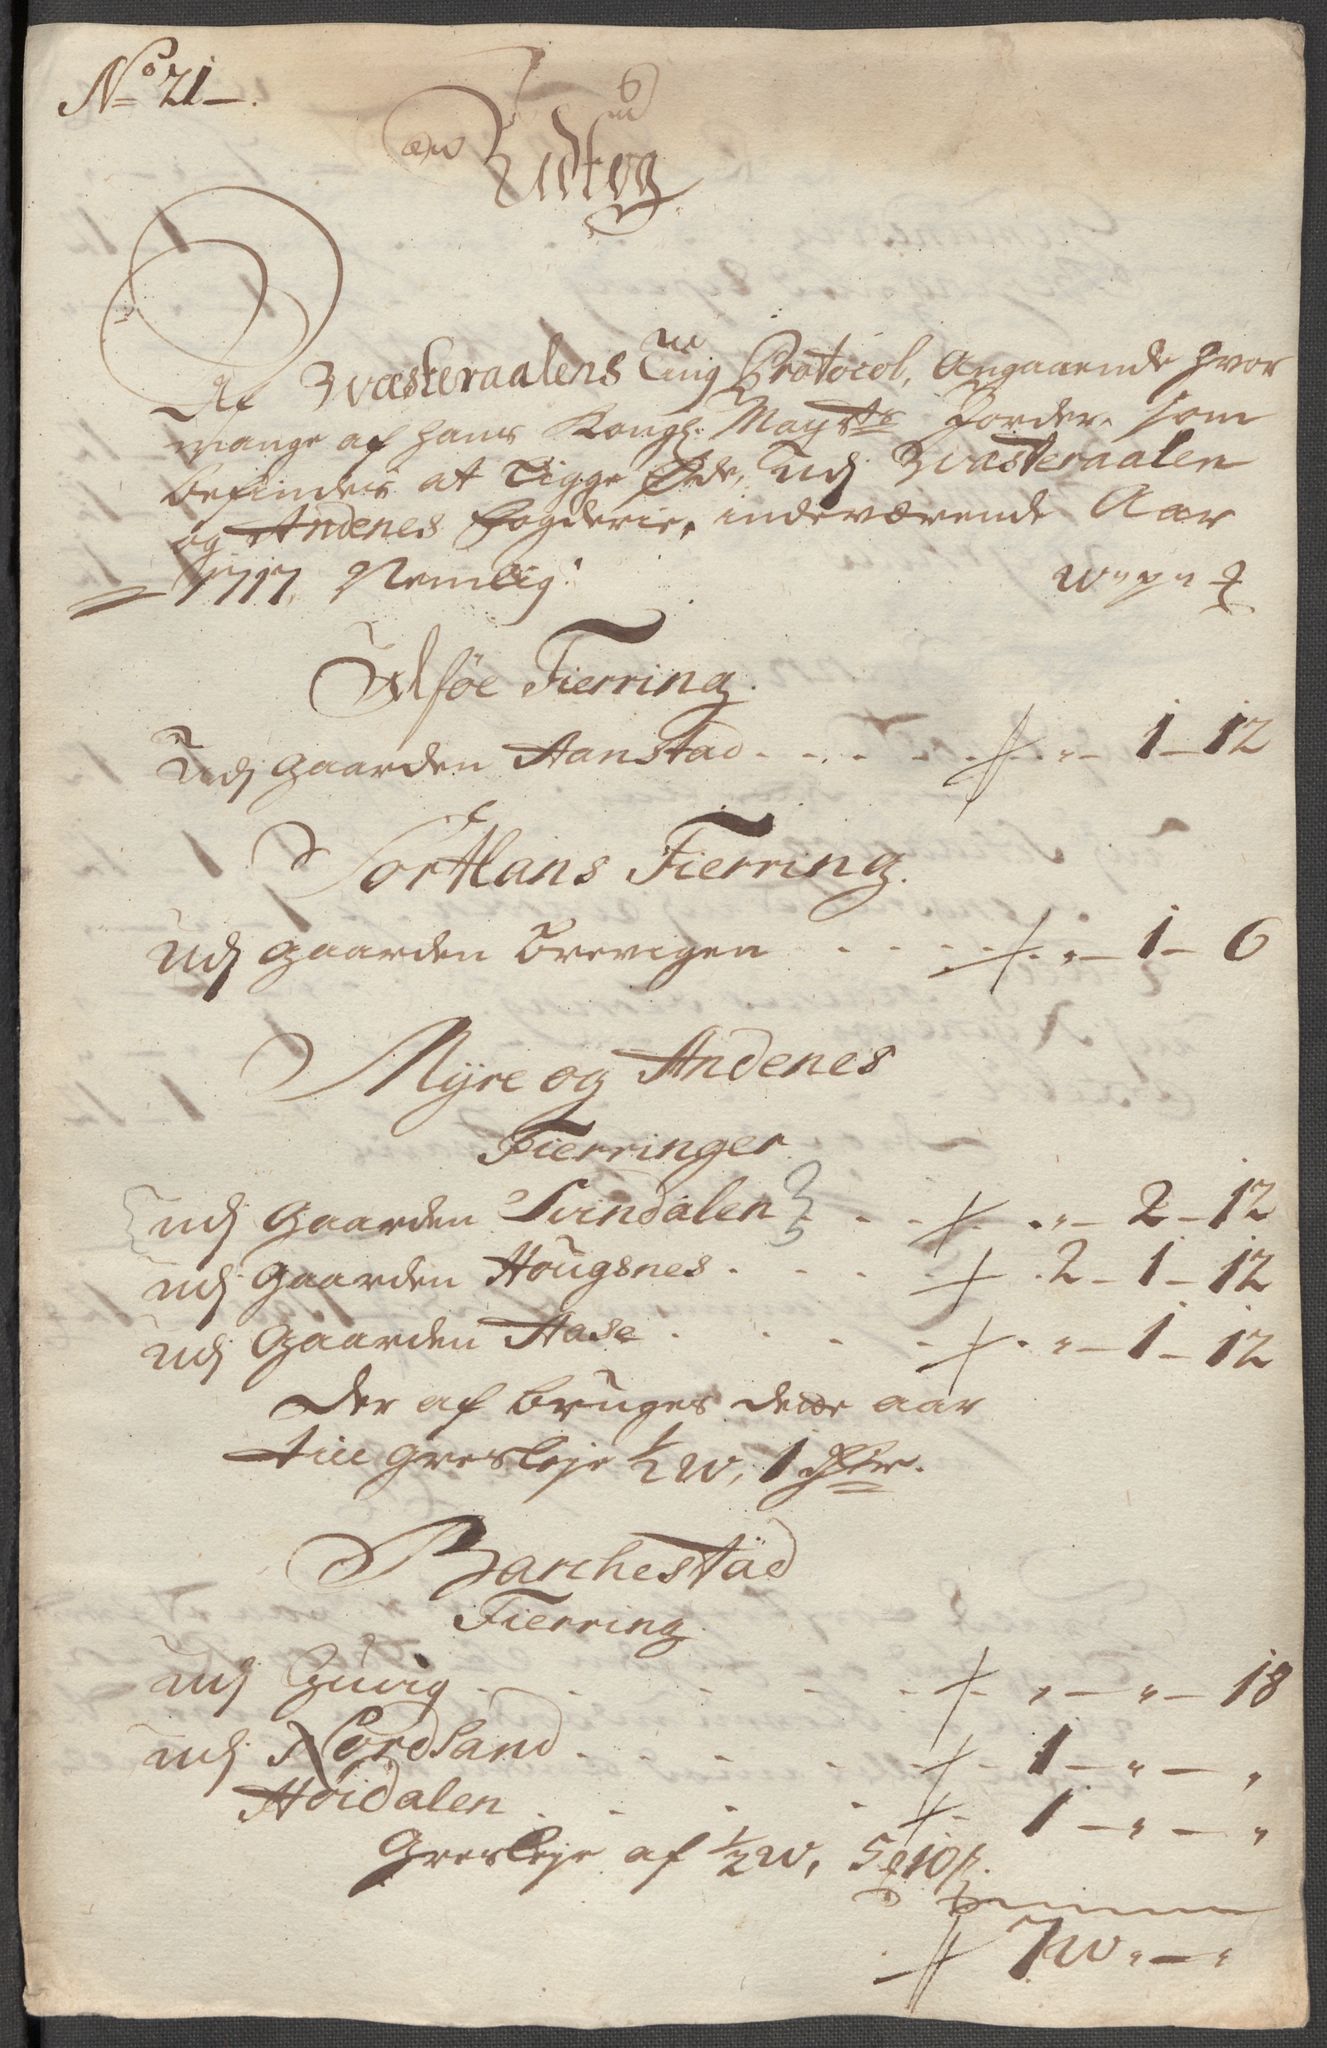 No 21
Udtog
Af Westeraalens Ting Protocol, Angaaende hvor
mange af hans Kongl: Maysts Jorder, som
befindes at Ligge Øde, udj Westeraalen
og Andenes fogderie, indeværende Aar
1717, Nemlig: W " p "
Ulføe Fierring.
Udj gaarden Aanstad " 1 - 12
Sortlans Fierring.
Udj gaarden Brevigen " 1 - 6
Myre og Andenes
Fierringer
udj gaarden Svindalen " 2 - 12
udj gaarden Hougsnes 2 - 1 - 12
udj gaarden Aase " 1 - 12
Der af bruges dette aar
till gresleje 1/2 W, 1
Barchestad
Fierring
udj Guvig " - " - 18
udj Nordsand 1 - " - "
Høidalen 1 - " - "
Gresleje af 1/2 W, 5 10
7 W " - "